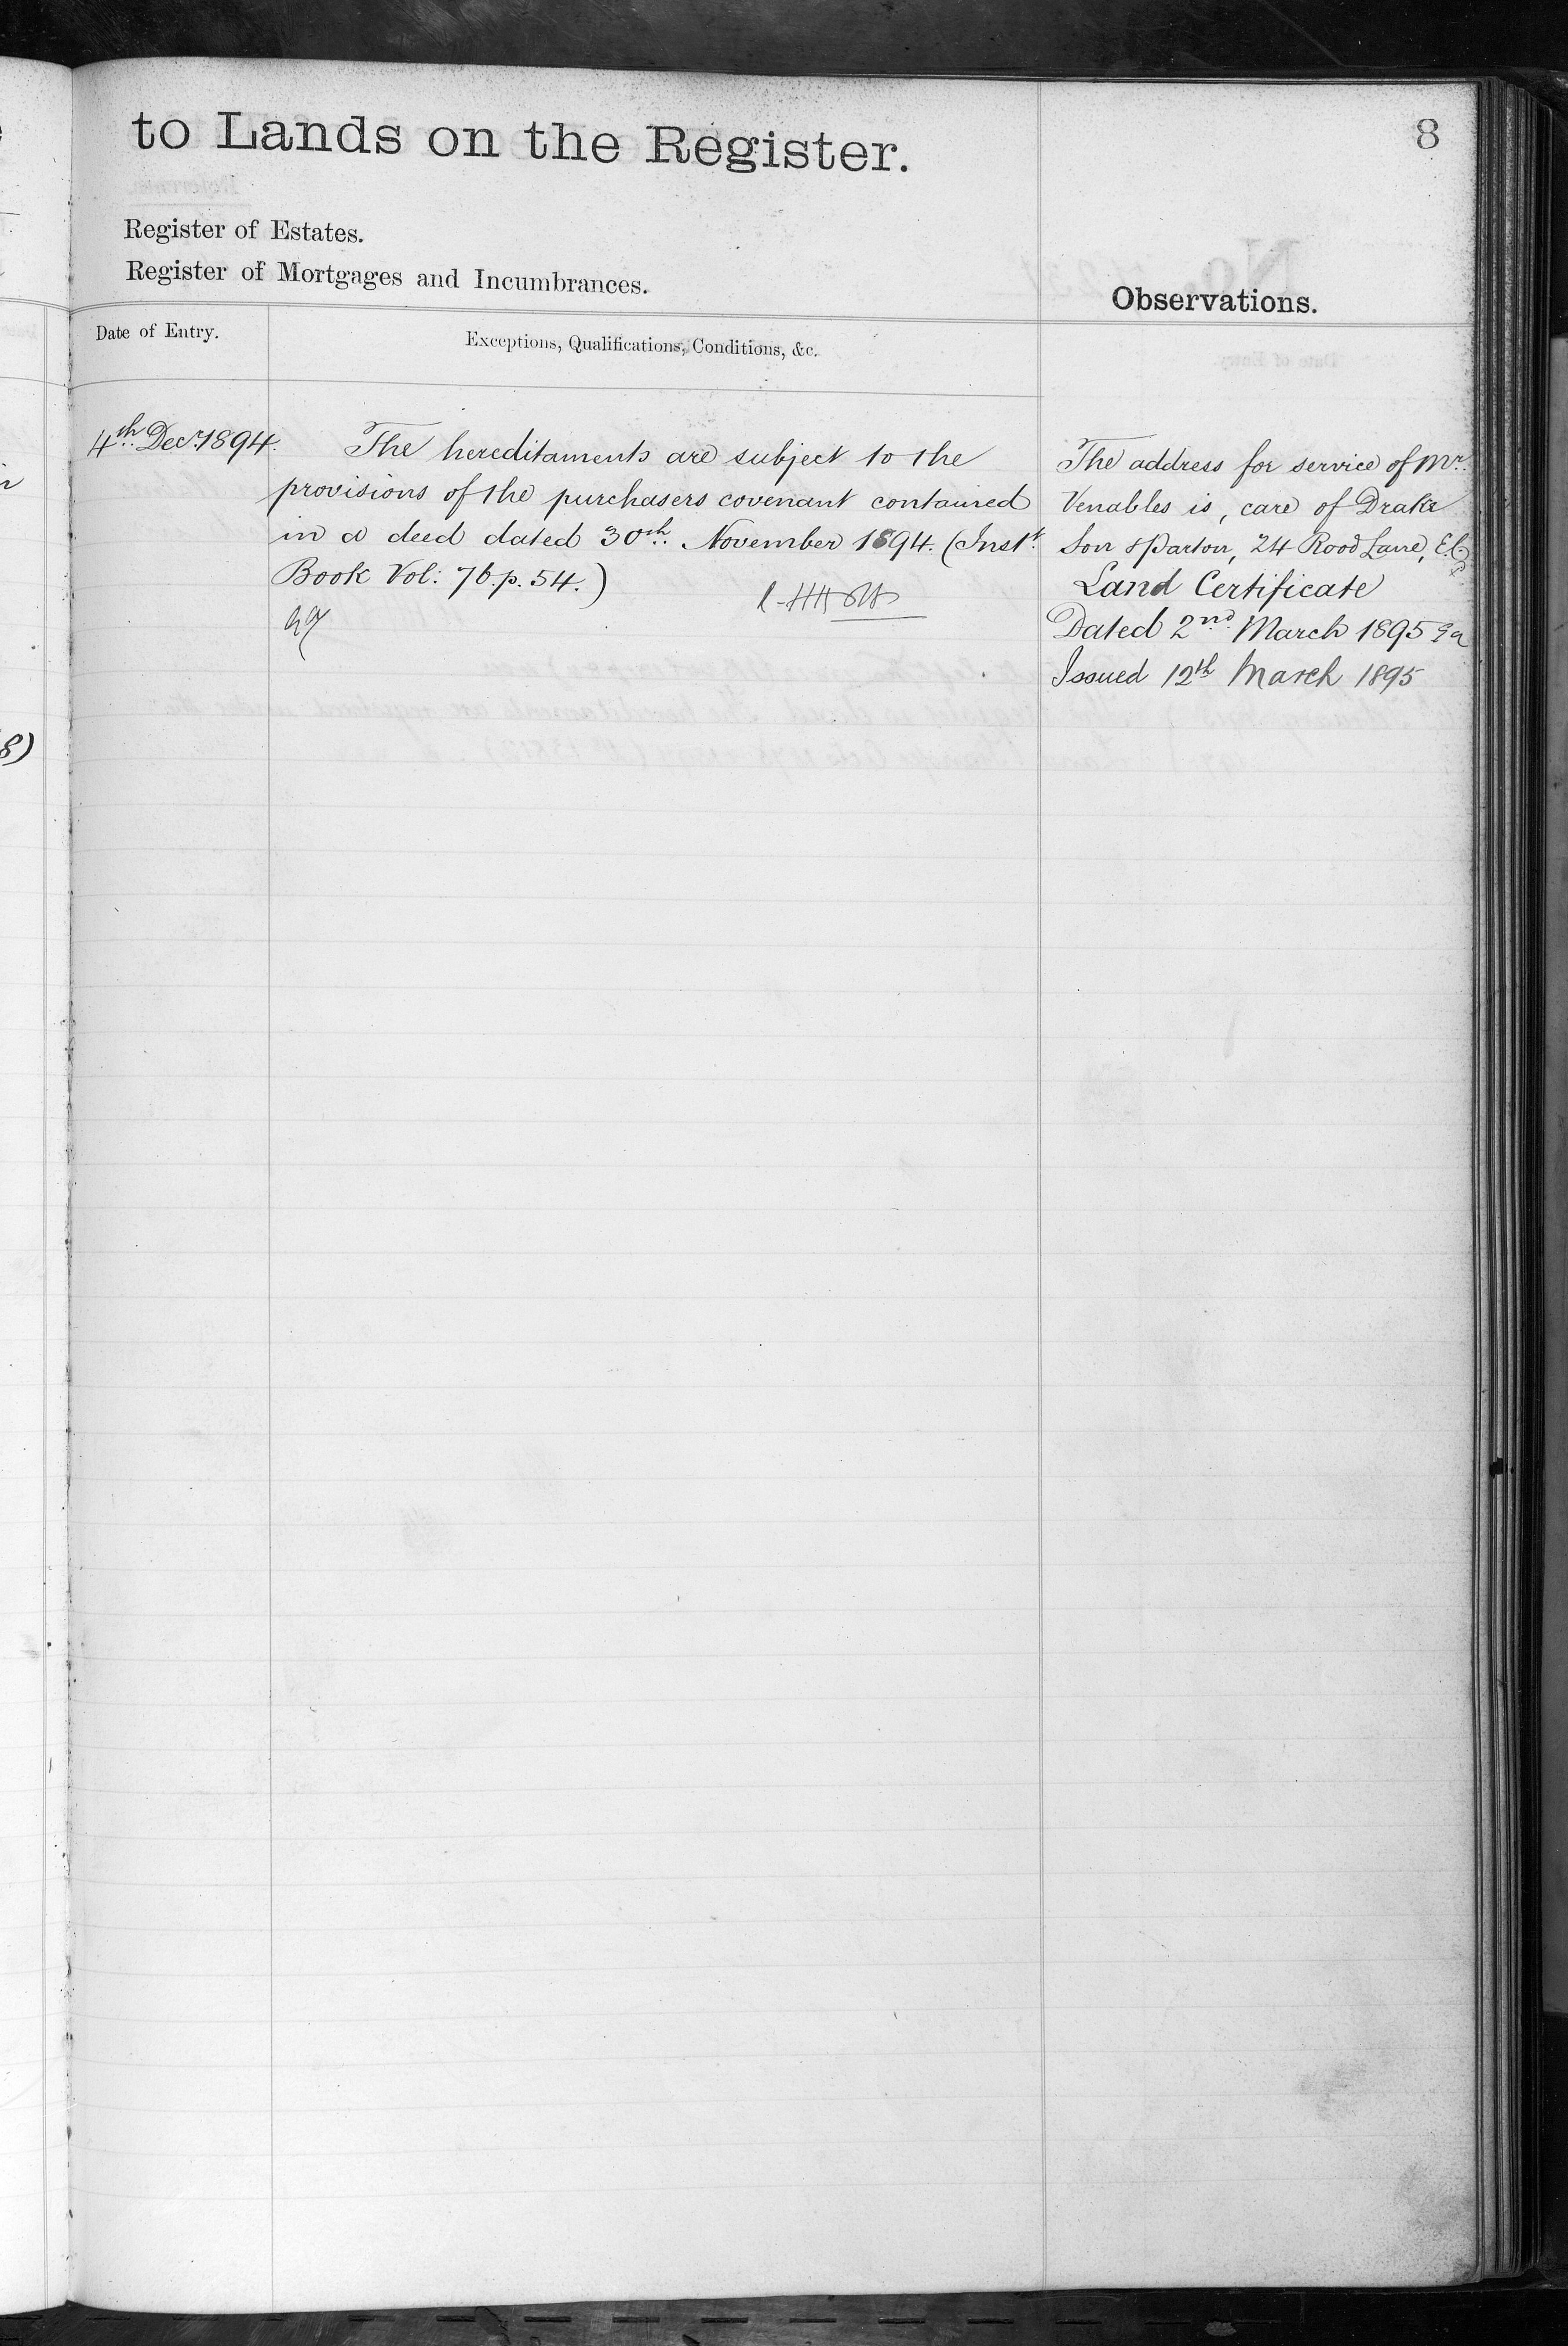 to Lands on the Register.
8
Register of Estates.
Register of Mortgages and Incumbrances.
Observations.
Date of Entry.
Exceptions, Qualifications, Conditions, &c.
4th Decr. 1894.
The hereditaments are subject to the
provisions of the purchasers covenant contained
in a deed dated 30th November 1894. (Inst.
Book Vol: 76. p. 54.)
The address for service of Mr.
Venables is, care of Drake
Son & Parton, 24 Rood Lane, E.C.
Land Certificate
Dated 2nd March 1895
Issued 12th March 1895
8)